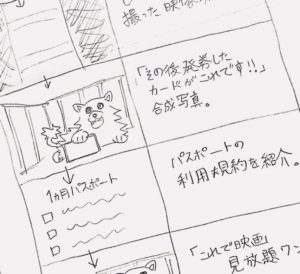 撮った映像
「その後発券した
カードがこれです!!」
合成写真。
1ヵ月パスポート
パスポートの
利用規約を紹介。
「これで映画
見放題ワン